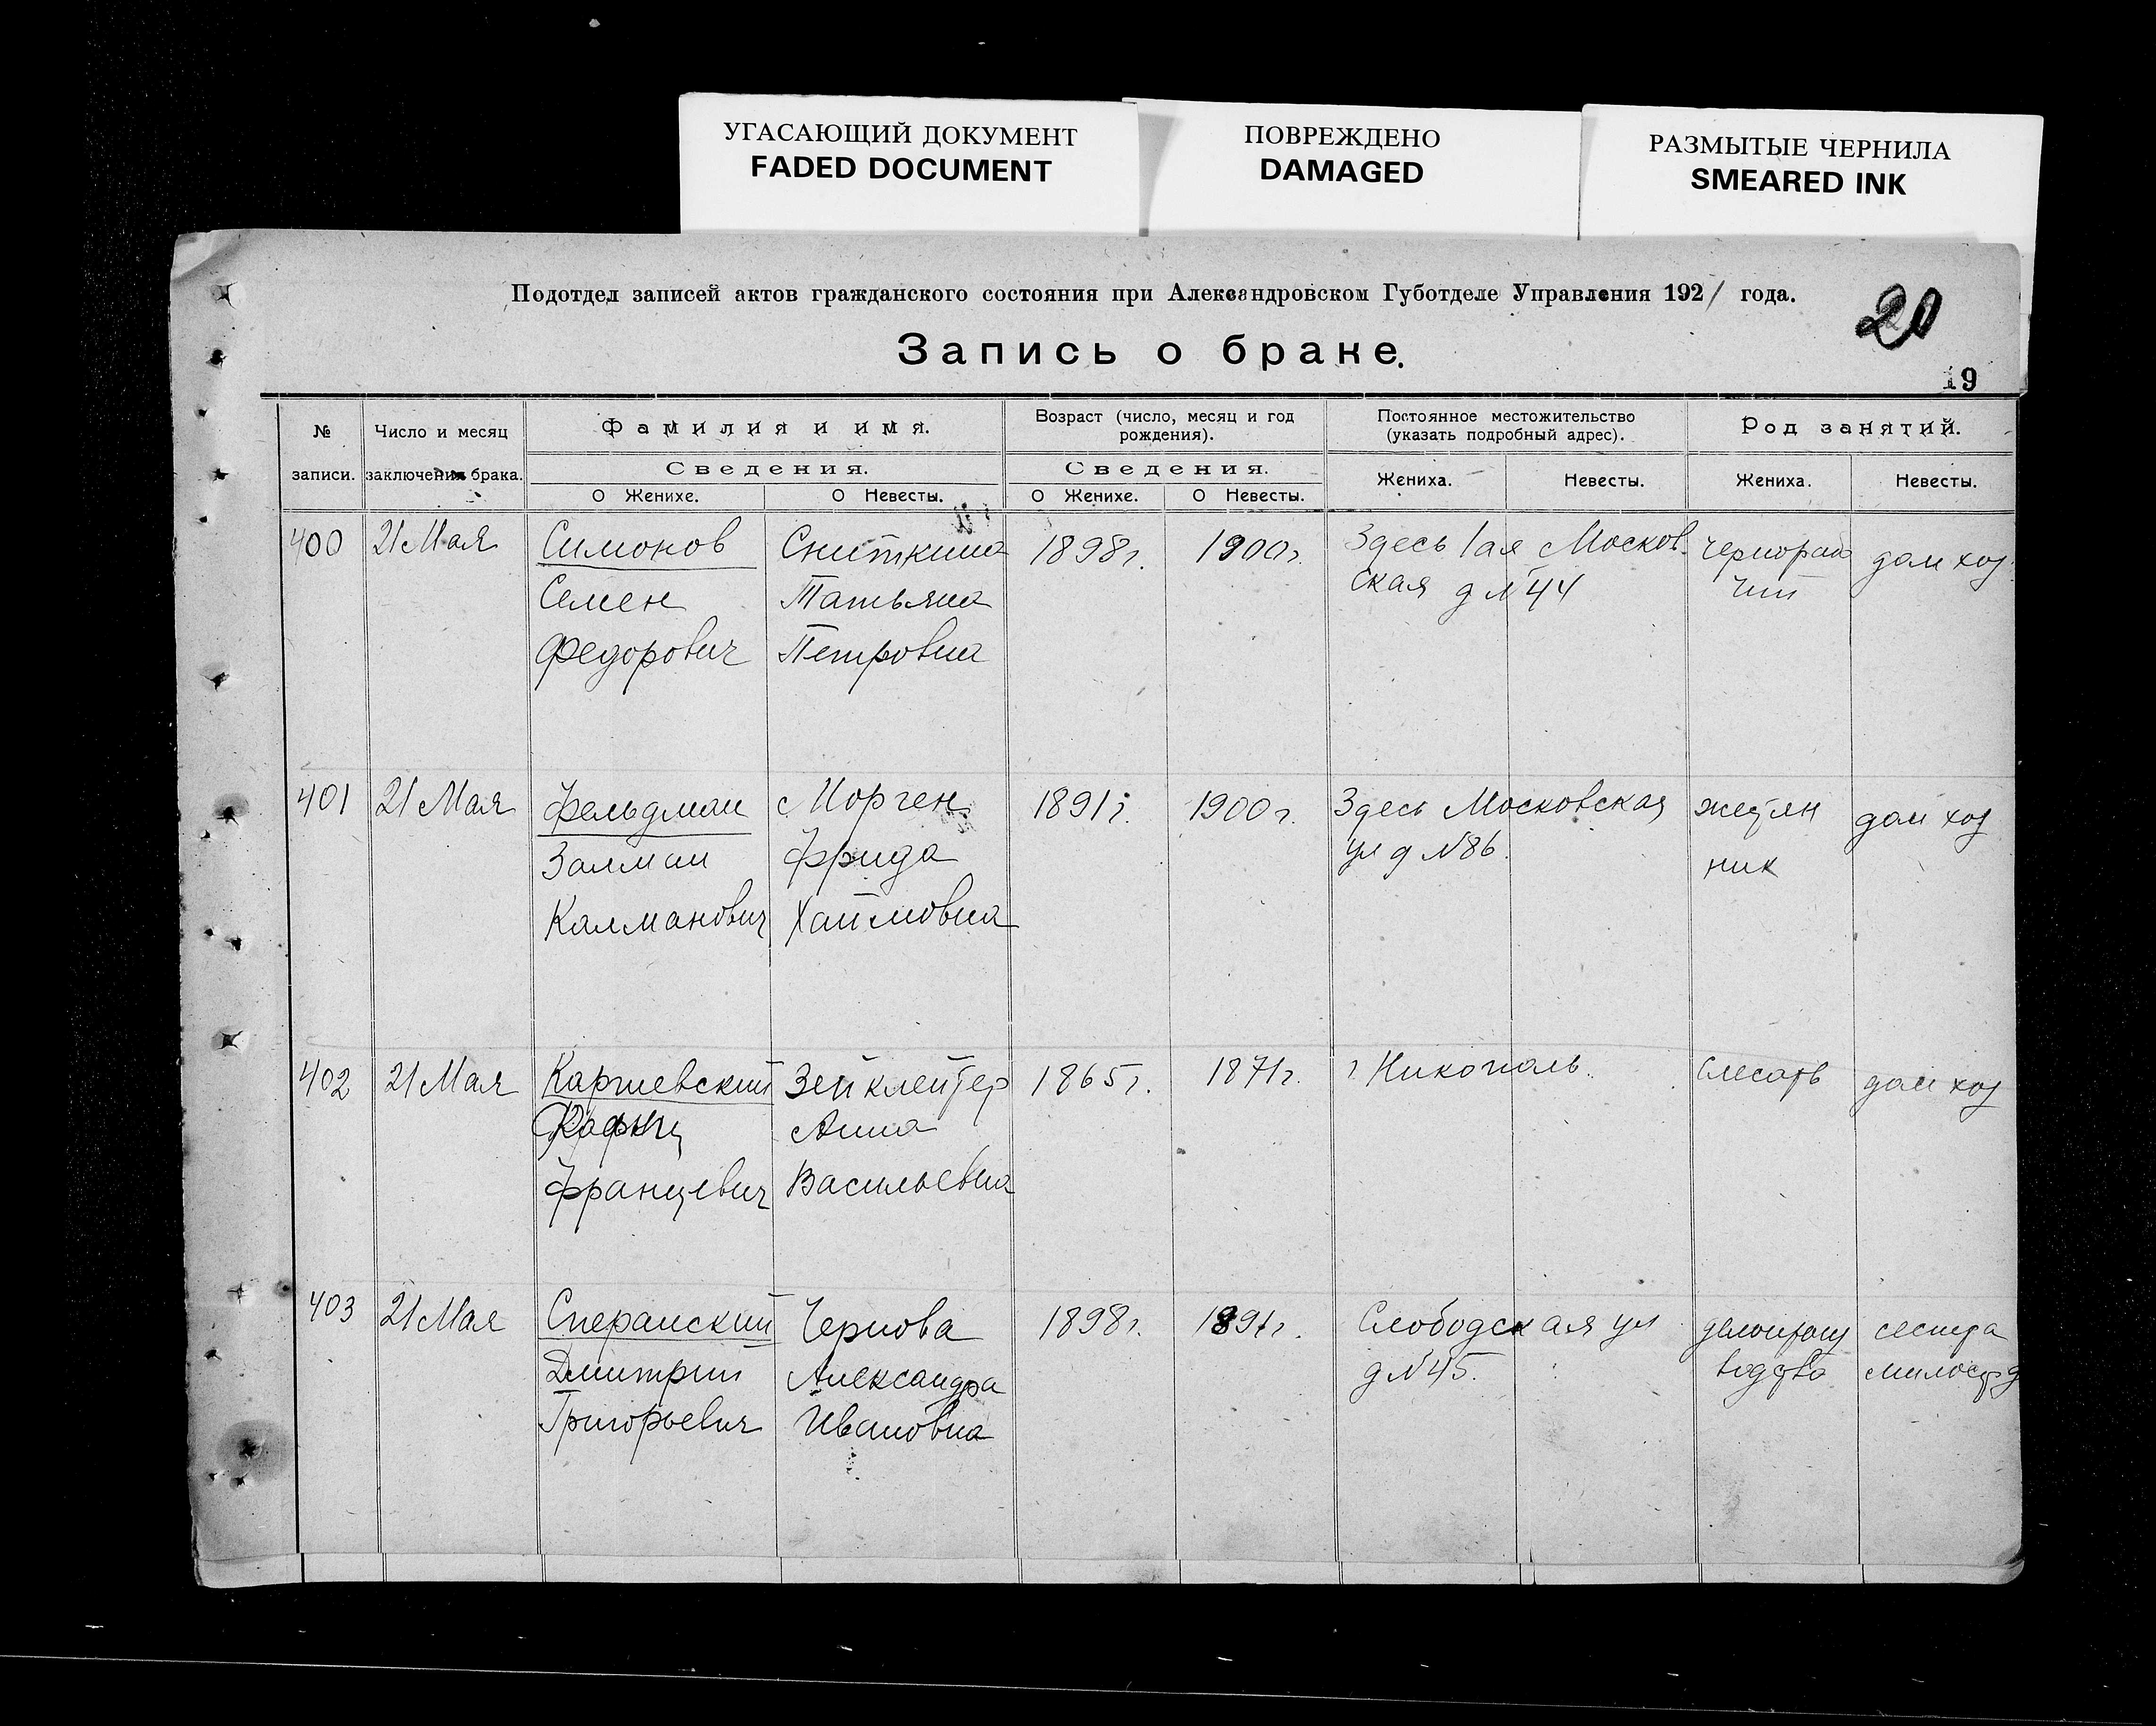 УГАСАЮЩИЙ ДОКУМЕНТ
FADED DOCUMENT
ПОВРЕЖДЕНО
DAMAGED
РАЗМЫТЫЕ ЧЕРНИЛА
SMEARED INK
Подотдел записей актов гражданского состояния при Александровском Губотделе Управления 1921 года.
20
Запись о браке.
19
№ записи.
Число и месяц заключения брака.
Фамилия и имя.
Возраст (число, месяц и год рождения).
Постоянное местожительство (указать подробный адрес).
Род занятий.
Сведения.
Сведения.
О Женихе.
О Невесты.
О Женихе.
О Невесты.
Жениха.
Невесты.
Жениха.
Невесты.
400 21 Мая Симонов Сниткина 1898 г. 1900 г. Здесь 1ая Москов. чернорабо дом хоз.
Семен Татьяна ская д № 44 чий
Федорович Петровна
401 21 Мая Фельдман Морген 1891 г. 1900 г. Здесь Московская жестян дом хоз
Залман Фрида ул д № 86. ник
Калманович Хаимовна
402 21 Мая Зейклейтер 1865 г. 1871 г. г Никополь. слесарь дом хоз
Анна
Францевич Васильевна
403 21 Мая Сперанский Чернова 1898 г. 1891 г. Слободская ул делопроиз сестра
Дмитрий Александра д № 45. водство милосерд
Григорьевич Ивановна